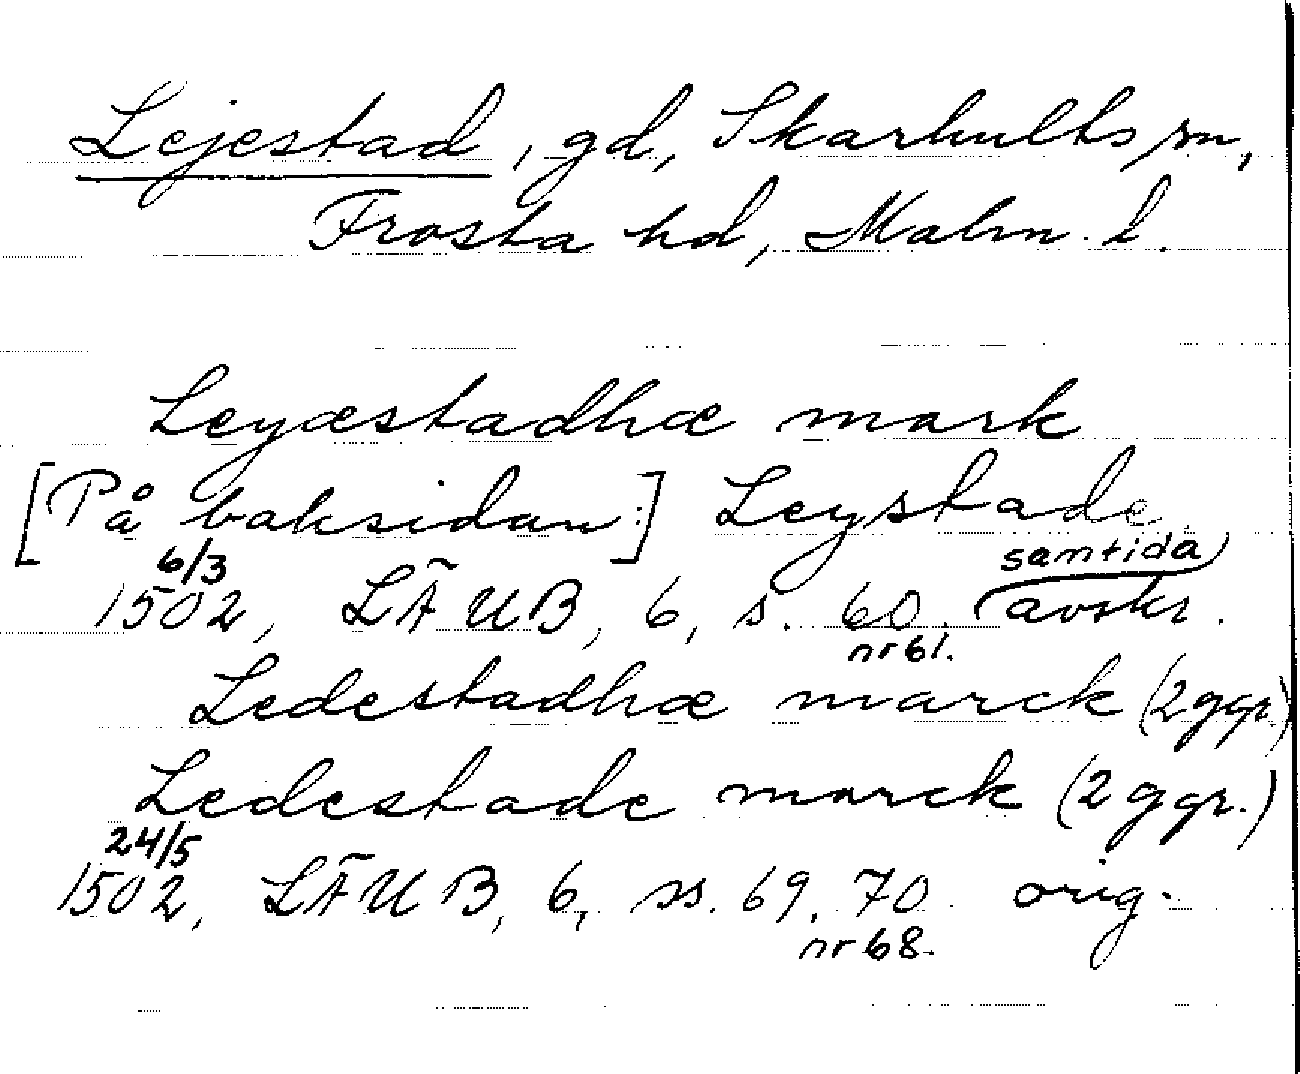 Lejestad, gd, Skarhults sn,
Frosta hd, Malm. l.
Leyæstadhæ mark
[På baksidan:] Leystade
6/3 samtida
1502, LÄUB, 6, s. 60. avskr.
nr 61.
Ledestadhæ marck (2 ggr)
Ledestade marck (2 ggr.)
24/5
1502, LÄUB, 6, ss. 69, 70. orig.
nr 68.